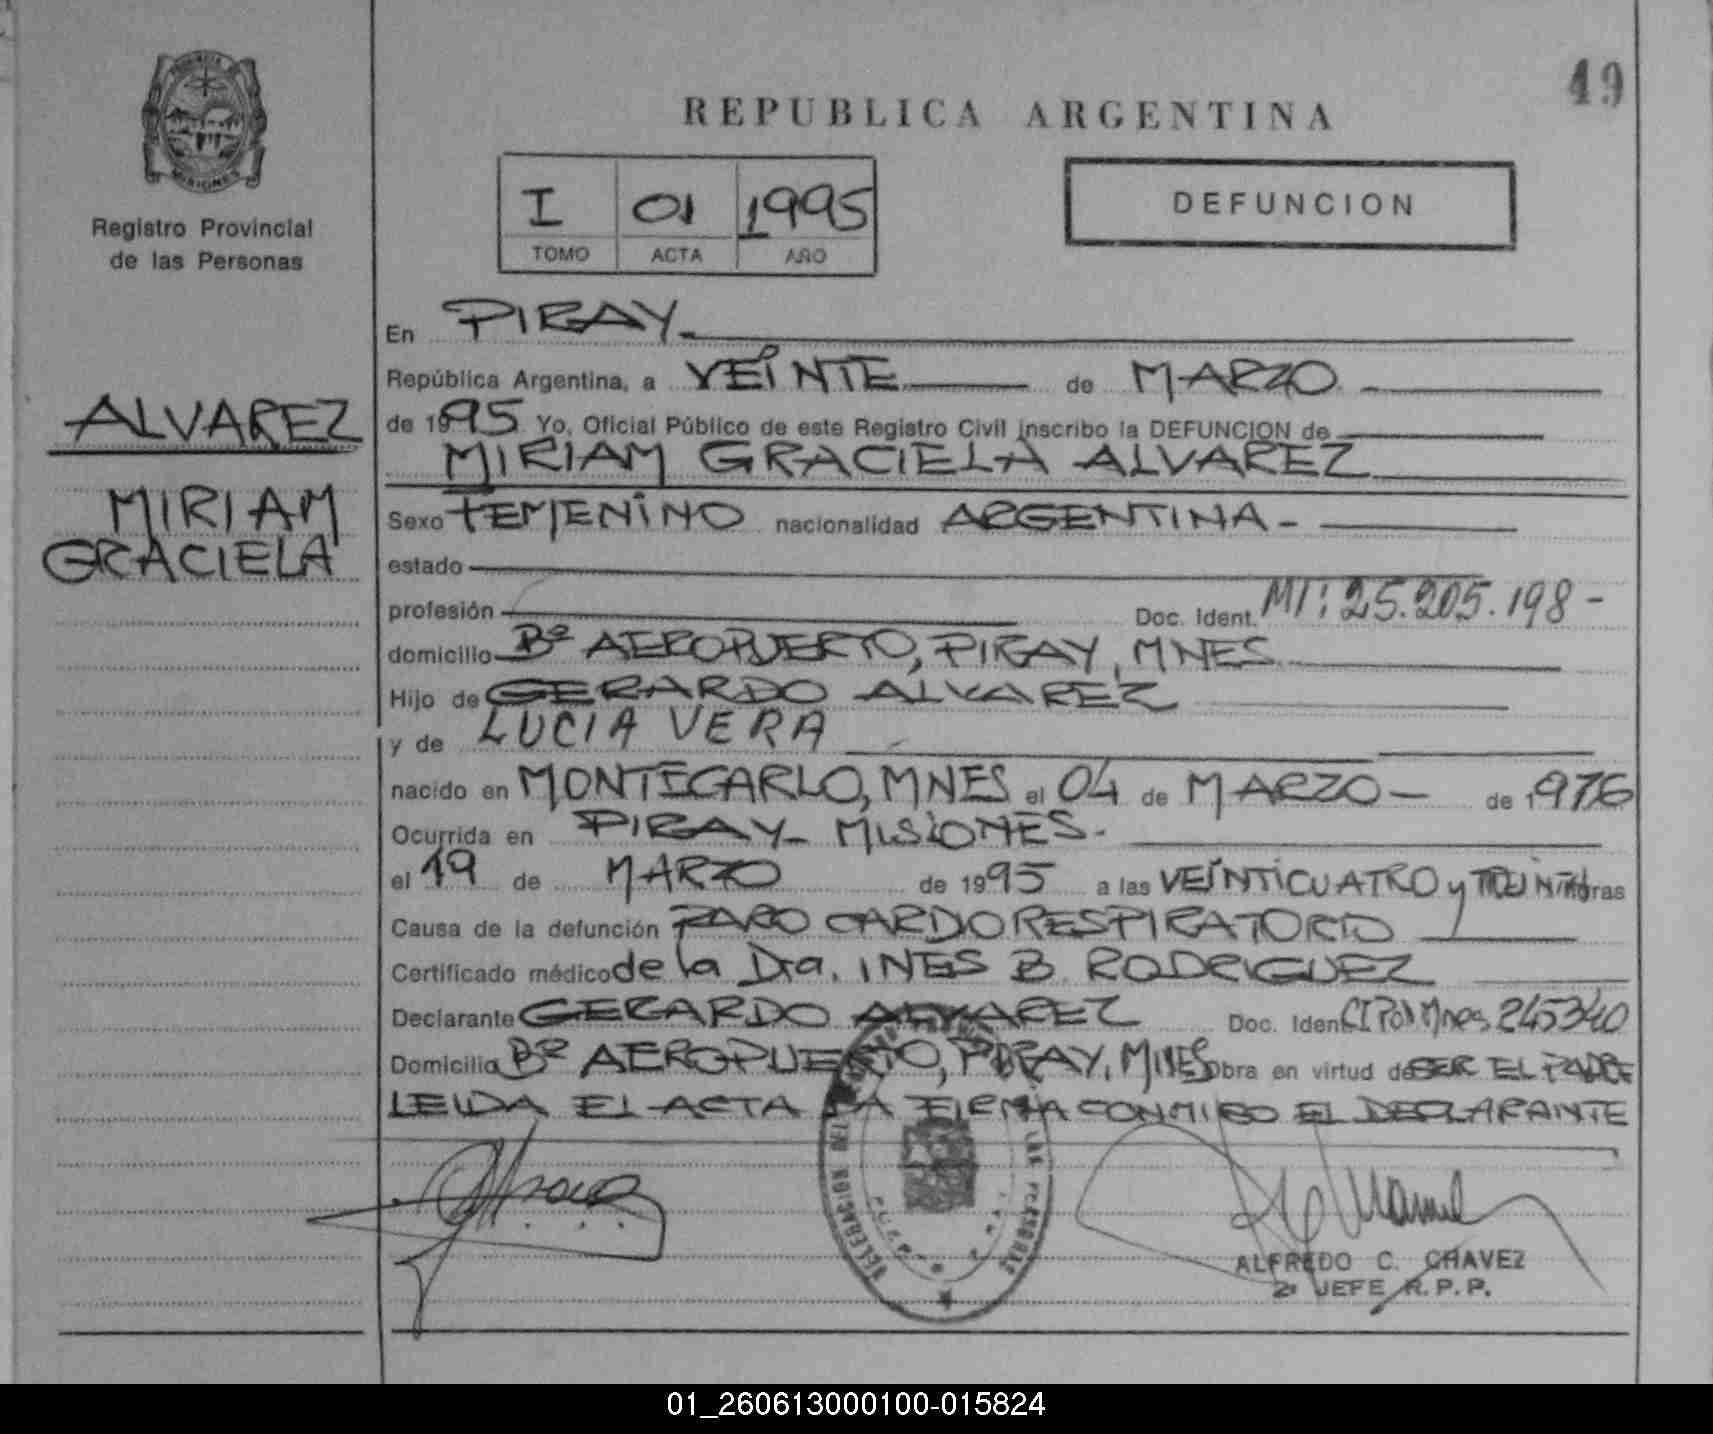 49
REPUBLICA ARGENTINA
MISIONES
Registro Provincial
de las Personas
I 01 1995
TOMO ACTA AÑO
DEFUNCION
ALVAREZ
MIRIAM
GRACIELA
En PIRAY
República Argentina, a VEINTE de MARZO
de 1995 Yo, Oficial Público de este Registro Civil inscribo la DEFUNCION de
MIRIAM GRACIELA ALVAREZ
Sexo FEMENINO nacionalidad ARGENTINA-
estado
profesión Doc. Ident. MI: 25.205.198-
domicilio Bº AEROPUERTO, PIRAY, MNES
Hijo de GERARDO ALVAREZ
y de LUCIA VERA
nacido en MONTECARLO, MNES el 04 de MARZO- de 1976
Ocurrida en PIRAY- MISIONES-
el 19 de MARZO de 1995 a las VEINTICUATRO y horas
Causa de la defunción PARO CARDIORESPIRATORIO
Certificado médico de la Dra. INES B. RODRIGUEZ
Declarante GERARDO ALVAREZ Doc. Ident. CI Pol Mnes 245340
Domicilio Bº AEROPUERTO, PIRAY, MNES obra en virtud de SER EL PADRE
LEIDA EL ACTA LA FIRMA CONMIGO EL DECLARANTE
DELEGACION DEL LAS PERSONAS
ALFREDO C. CHAVEZ
2º JEFE R.P.P.
01_260613000100-015824